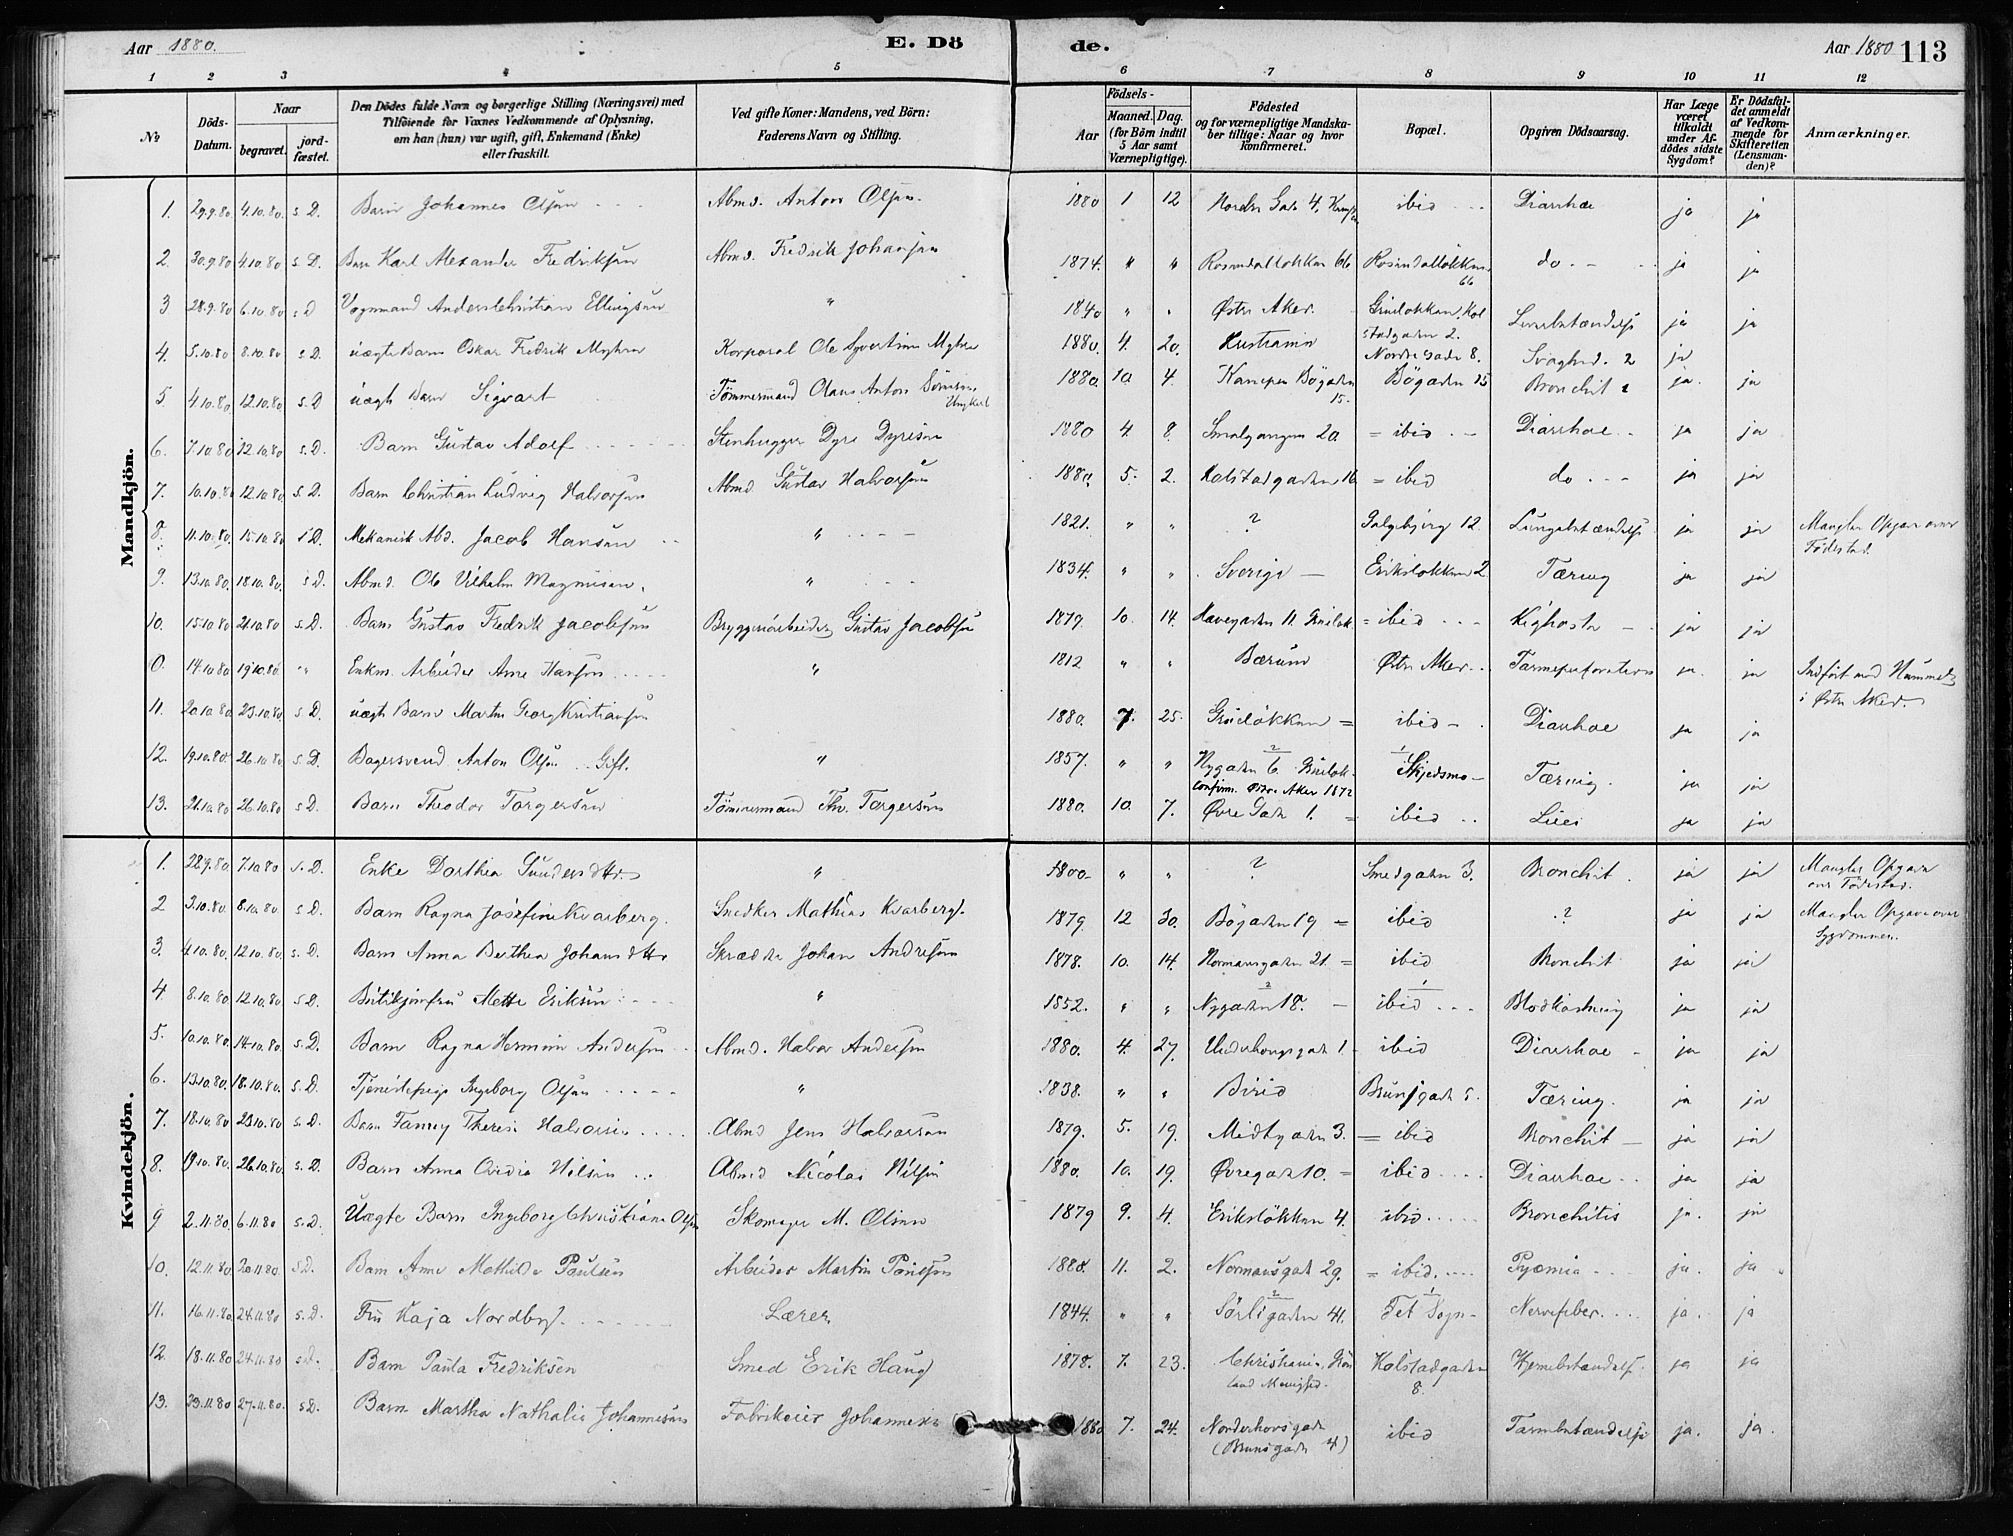 Aar 1880.
E. Dö
de.
Aar 1880 113
1 2 3 4 5 6 7 8 9 10 11 12
No
Döds-Datum.
Naar
begravet.
jord-fæstet.
Den Dödes fulde Navn og borgerlige Stilling (Næringsvei) med
Tilföiende for Voxnes Vedkommende af Oplysning,
om han (hun) var ugift, gift, Enkemand (Enke)
eller fraskilt.
Ved gifte Koner: Mandens, ved Börn:
Faderens Navn og Stilling.
Födsels-
Aar
Maaned. Dag.
(for Börn indtil
5 Aar samt
Værnepligtige).
Födested
og for værnepligtige Mandska-
ber tillige: Naar og hvor
konfirmeret.
Bopæl.
Opgiven Dödsaarsag.
Har Læge
været
tilkaldt
under Af-
dödes sidste
Sygdom?
Er Dödsfal-
det anmeldt
af Vedkom-
mende for
Skifteretten
(Lensman-
den)?
Anmærkninger.
Mandkjön.
1. 29.9.80 4.10.80. s.D. Barn Johannes Olsen Abmd. Anton Olsen 1880 1 12 Nordre Gade 4, ibid Diarrhoe ja ja
2. 30.9.80 4.10.80 s.D. Barn Karl Alexander Fredriksen Abmd. Fredrik Johansen 1874. " " Rosendalløkken 66 Rosendalløkken 66 do ja ja
3 28.9.80 6.10.80 s.D Vognmand Anders Christian Ellingsen " 1840 " " Østre Aker. Grüneløkken, Kolstadgaden 2. ja ja
4. 5.10.80 8.10.80 s.D. uægte Barn Oskar Fredrik Myhre Korporal Ole Syvertsen Myhre 1880. 4. 20. Nordre Gade 8. Svaghed. ja
5. 4.10.80 12.10.80 s.D uægte Barn Sigvart Tømmermand Olaus Anton Ungkarl 1880. 10. 4. Kampen Bøgaden 15. Bøgaden 15 Bronchit ja. ja
6. 7.10.80 12.10.80 s.D. Barn Gustav Adolf Stenhugger Dyre Dyresen 1880 4. 8. Smalgangen 20 = ibid Diarrhoe ja ja
7. 10.10.80 12.10.80 s.D. Barn Christian Ludvig Halvorsen Abmd Gustav Halvorsen 1880. 5. 2. Kolstadgaden 16 = ibid do ja ja
8. 11.10.80 15.10.80 s.D. Mekanisk Abd. Jacob Hansen " 1821. " " ? Galgebjerg 12. Lungebetændelse ja ja Mangler Opgave over Fødested.
9. 13.10.80. 18.10.80. s.D. Abmd. Ole Vilhelm Magnusen " 1834. " " Sverige Eriksløkken 2 Tæring ja ja
10. 15.10.80 21.10.80 s.D. Barn Gustav Fredrik Jacobsen Bryggeriarbeider Gustav Jacobsen 1879. 10. 14. Havegaden 11 Grüneløk. = ibid Kighoste ja ja
0. 14.10.80 19.10.80 " Enkm. Arbeider Arne Hansen " 1812 " " Bærum Østre Aker Tarmeperforation ja. ja Indført med Nummer i Østre Aker.
11. 20.10.80 23.10.80 s.D. uægte Barn Martin Georg Kristiansen 1880. 7. 25. Grüneløkken = ibid Diarrhoe ja ja
12. 19.10.80. 26.10.80 s.D. Bagersvend Anton Olsen Gift. " 1857. " " Nygaden 6. Grüneløk. confirm. Østre Aker 1872 Skjedsmo Tæring. ja ja
13. 21.10.80 26.10.80 s.D. Barn Theodor Torgersen Tömmermand Th. Torgersen 1880. 10. 7. Øvre Gade 1. = ibid ja ja
Kvindekjön.
1. 28.9.80. 7.10.80 s.D. Enke Dorthea Gundersdtr. " 1800 " " ? Smedgaden 3. Bronchit. ja ja Mangler Opgave over Fødested.
2 3.10.80. 8.10.80. s.D. Barn Ragna Josefine Kvarberg. Snedker Mathias Kvarberg. 1879. 12 30. Bögaden 19 = ibid ? ja ja Mangler Opgave over Sygdommen.
3. 4.10.80. 12.10.80 s.D. Barn Anna Berthea Johansdtr. Skrædder Johan Andresen 1878. 10. 14. Normansgaden 21. = ibid Bronchit ja ja
4. 8.10.80 12.10.80 s.D. Butikjomfru Mette Eriksen " 1852. " " Nygaden 18. ibid Blodkastning ja ja
5. 10.10.80. 14.10.80. s.D. Barn Ragna Hermine Andersen Abmd. Halvor Andersen 1880. 4. 27. 1. ibid Diarrhoe ja ja
6. 13.10.80. 18.10.80. s.D. Tjenestepige Ingeborg Olsen " 1838. " " Birid Brunsgade 5. Tæring. ja ja
7. 18.10.80 23.10.80 s.D. Barn Fanny Therese Halvorsen Abmd Jens Halvorsen 1879. 5. 19. Midtgaden 3. = ibid Bronchit ja ja
8. 19.10.80. 26.10.80 s.D. Barn Anna Ovidia Nilsen Abmd Nicolai Nilsen 1880. 10. 19. Øvregade 10. = ibid Diarrhoe ja ja
9 2.11.80. 6.11.80 s.D. Uægte Barn Ingeborg Christiane Olsen Skomager M. Olsen 1879 9. 4. Eriksløkken 4. ibid Bronchitis ja. ja
10. 12.11.80. 20.11.80. s.D. Barn Anne Mathilde Paulsen Arbeider Martin Paulsen 1880. 11. 2. Normansgade 29. = ibid. Pyæmia ja. ja
11. 16.11.80. 24.11.80 s.D. Fru Kaja Nordby. Lærer 1844. " " Sörligaden 41. Fet Sogn Nervefeber. ja. ja
12. 18.11.80 24.11.80 s.D. Barn Paula Fredriksen Smed Erik Haug 1878. 7. 23. Christiania, Grønland Menighed. Kolstadgaden 8. Hjernebetændelse ja ja
13. 23.11.80 27.11.80. s.D. Barn Martha Nathalie Johannesen Fabrikeier Johannesen 1880 7. 24. Norderhovsgade (Brunsgade 4) ibid Tarmbetændelse ja. ja.